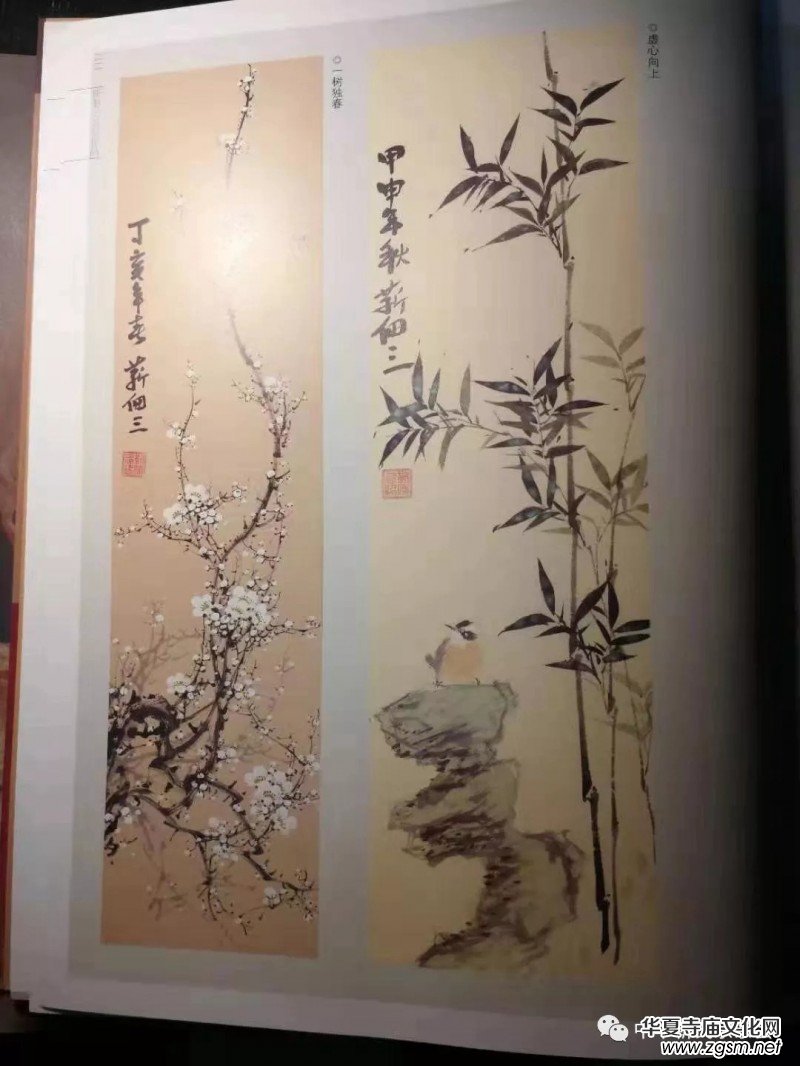 ◎虚心向上
甲申年秋 薪佃三
◎一树独春
丁亥年春 薪佃三
华夏寺庙文化网
www.zgsm.net